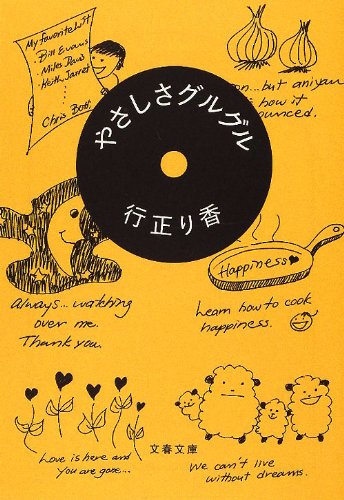 My Favorite List
Bill Evans
・Miles Davis
・Keith Jarret
Chris Botti
...but aniyon
is how it
ounced.
やさしさグルグル
行正り香
Happiness♥
Always... watching
over me.
Thank you.
Learn how to cook
happiness.
Love is here and
You are gone...
We can't live
without dreams.
文春文庫